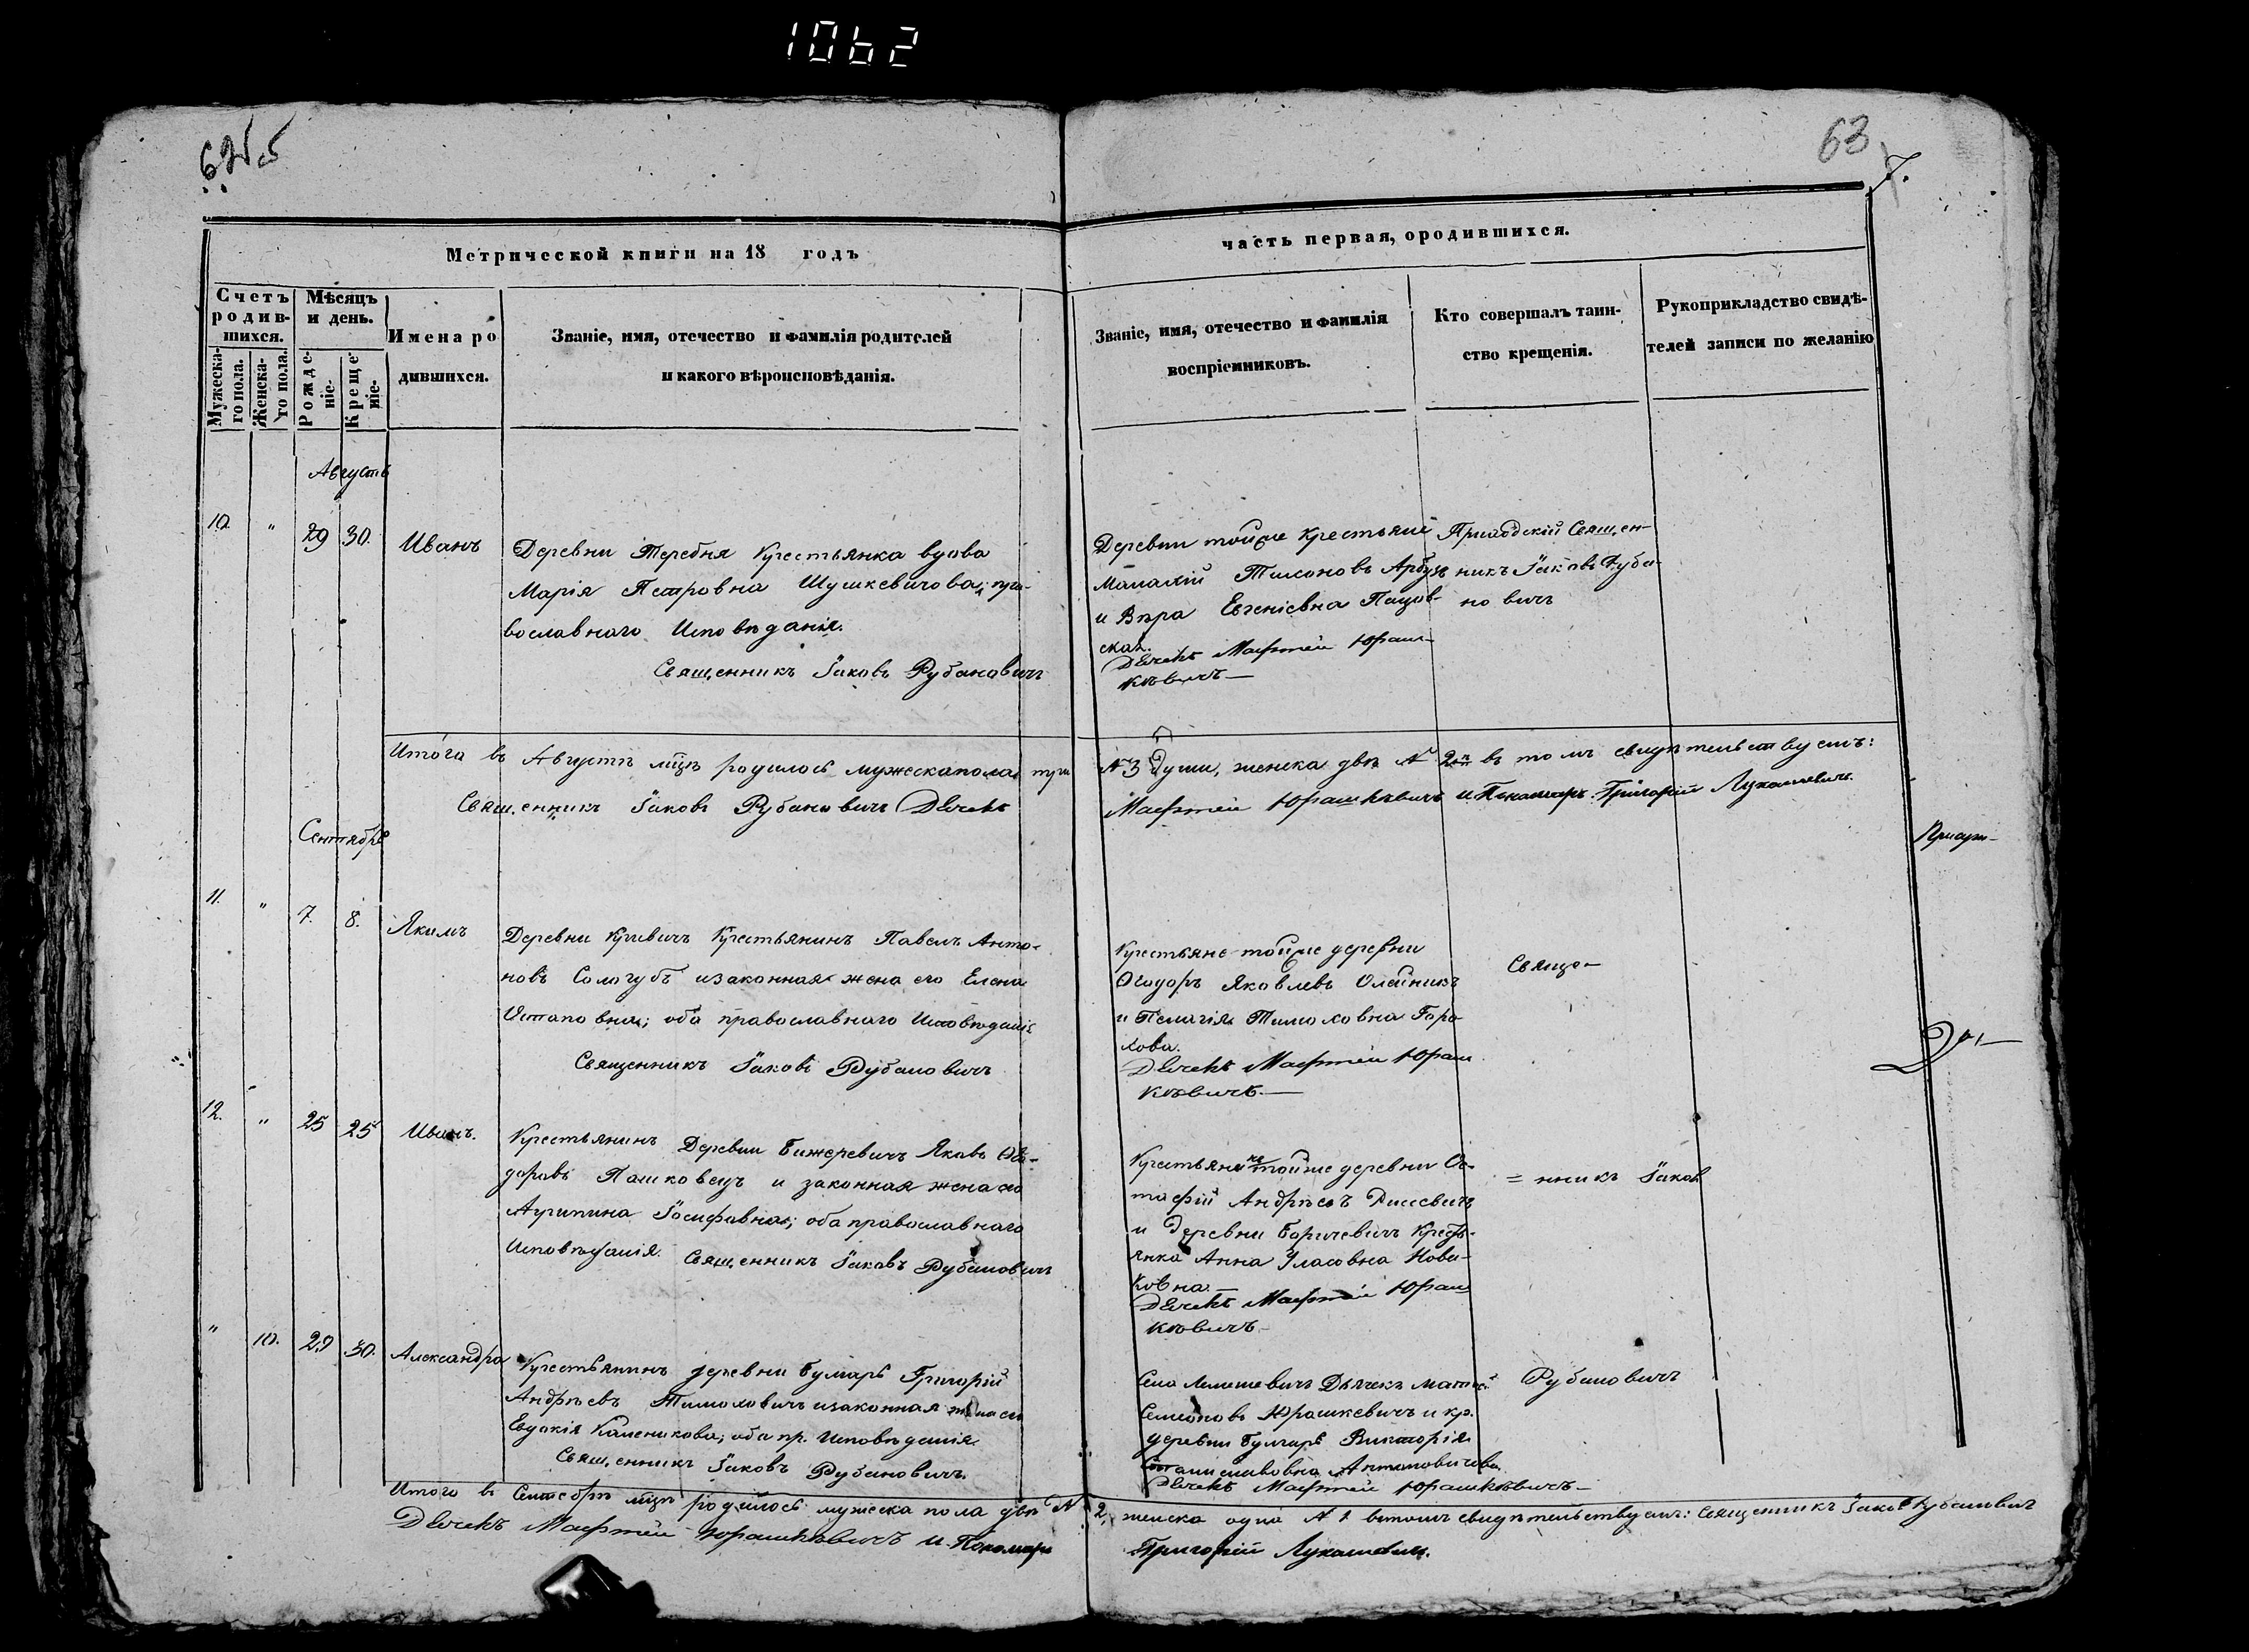 1062
63
7.
Метрической книги на 18 годъ
часть первая, ородившихся.
Счетъ родив-
шихся.
Мужеска-
го пола.
Женска-
го пола.
Мѣсяцъ
и день.
Рожде-
ніе.
Креще
ніе.
Имена ро
дившихся.
Званіе, имя, отечество и фамилія родителей
и какого вѣроисповѣданія.
Званіе, имя, отечество и фамилія
воспріемниковъ.
Кто совершалъ таин-
ство крещенія.
Рукоприкладство свидѣ-
телей записи по желанію
Августъ
10. " 29 30. Иванъ
Деревни Теребня Крестьянка вдова
Марія Петровна Шушкевичова; пра-
вославнаго Исповѣданія.
Священникъ Іаковъ Рубановичъ
Деревни тойже
Тихоновъ
и Вѣра Евгеніевна Пацов-
ская.
Дьячекъ Матфей Юраш-
кевичъ
Приходскій Священ-
никъ Іаковъ Руба-
новичъ
Итого въ Августѣ мцѣ родилось мужеска пола три
№ 3 души, женска двѣ № 2 въ томъ свидѣтельствуемъ:
Священникъ Іаковъ Рубановичъ Дьячекъ
Матфей Юрашкевичъ и Пономарь Григорій Лукашевичъ.
Сентябрь
11. " 7. 8. Якимъ
Деревни Кривичъ Крестьянинъ Павелъ Анто-
новъ Сологубъ изаконная жена его Елена
Остаповна; оба православнаго Исповѣданія
Священникъ Іаковъ Рубановичъ
Крестьяне тойже деревни
Ѳеодоръ Яковлевъ Олейникъ
и Пелагія Тимоховна Горо-
хова.
Дьячекъ Матфей Юраш
кевичъ.
Свяще-
12. " 25 25 Иванъ.
Крестьянинъ Деревни Бижеревичъ Яковъ Ѳео-
доровъ Пашковецъ и законная жена его
Агрипина Іосифовна; оба православнаго
Исповѣданія. Священникъ Іаковъ Рубановичъ
Крестьяне тойже деревни Ос-
тафій Андрѣевъ
и деревни Боричевичъ Кресть-
янка Анна Уласовна Нови-
ковна.
Дьячекъ Матфей Юраш
кевичъ.
= нникъ Іаковъ
" 10. 29 30. Александра
Крестьянинъ деревни Булгары Григорій
Андрѣевъ Тимоховичъ изаконная жена его
Евдокія; оба пр. Исповѣданія
Священникъ Іаковъ Рубановичъ.
Села Лемешевичъ Дьячекъ Матфей
Семеоновъ Юрашкевичъ и кр.
деревни Булгары Викторія
Станиславовна Антоновичова.
Дьячекъ Матфей Юрашкевичъ
Рубановичъ
Итого въ Сентебрѣ мцѣ родилось мужеска пола двѣ № 2, женска одна № 1 втомъ свидѣтельствуемъ: Священникъ Іаковъ Рубановичъ
Дьячекъ Матфей Юрашкевичъ и Пономарь Григорій Лукашевичъ.